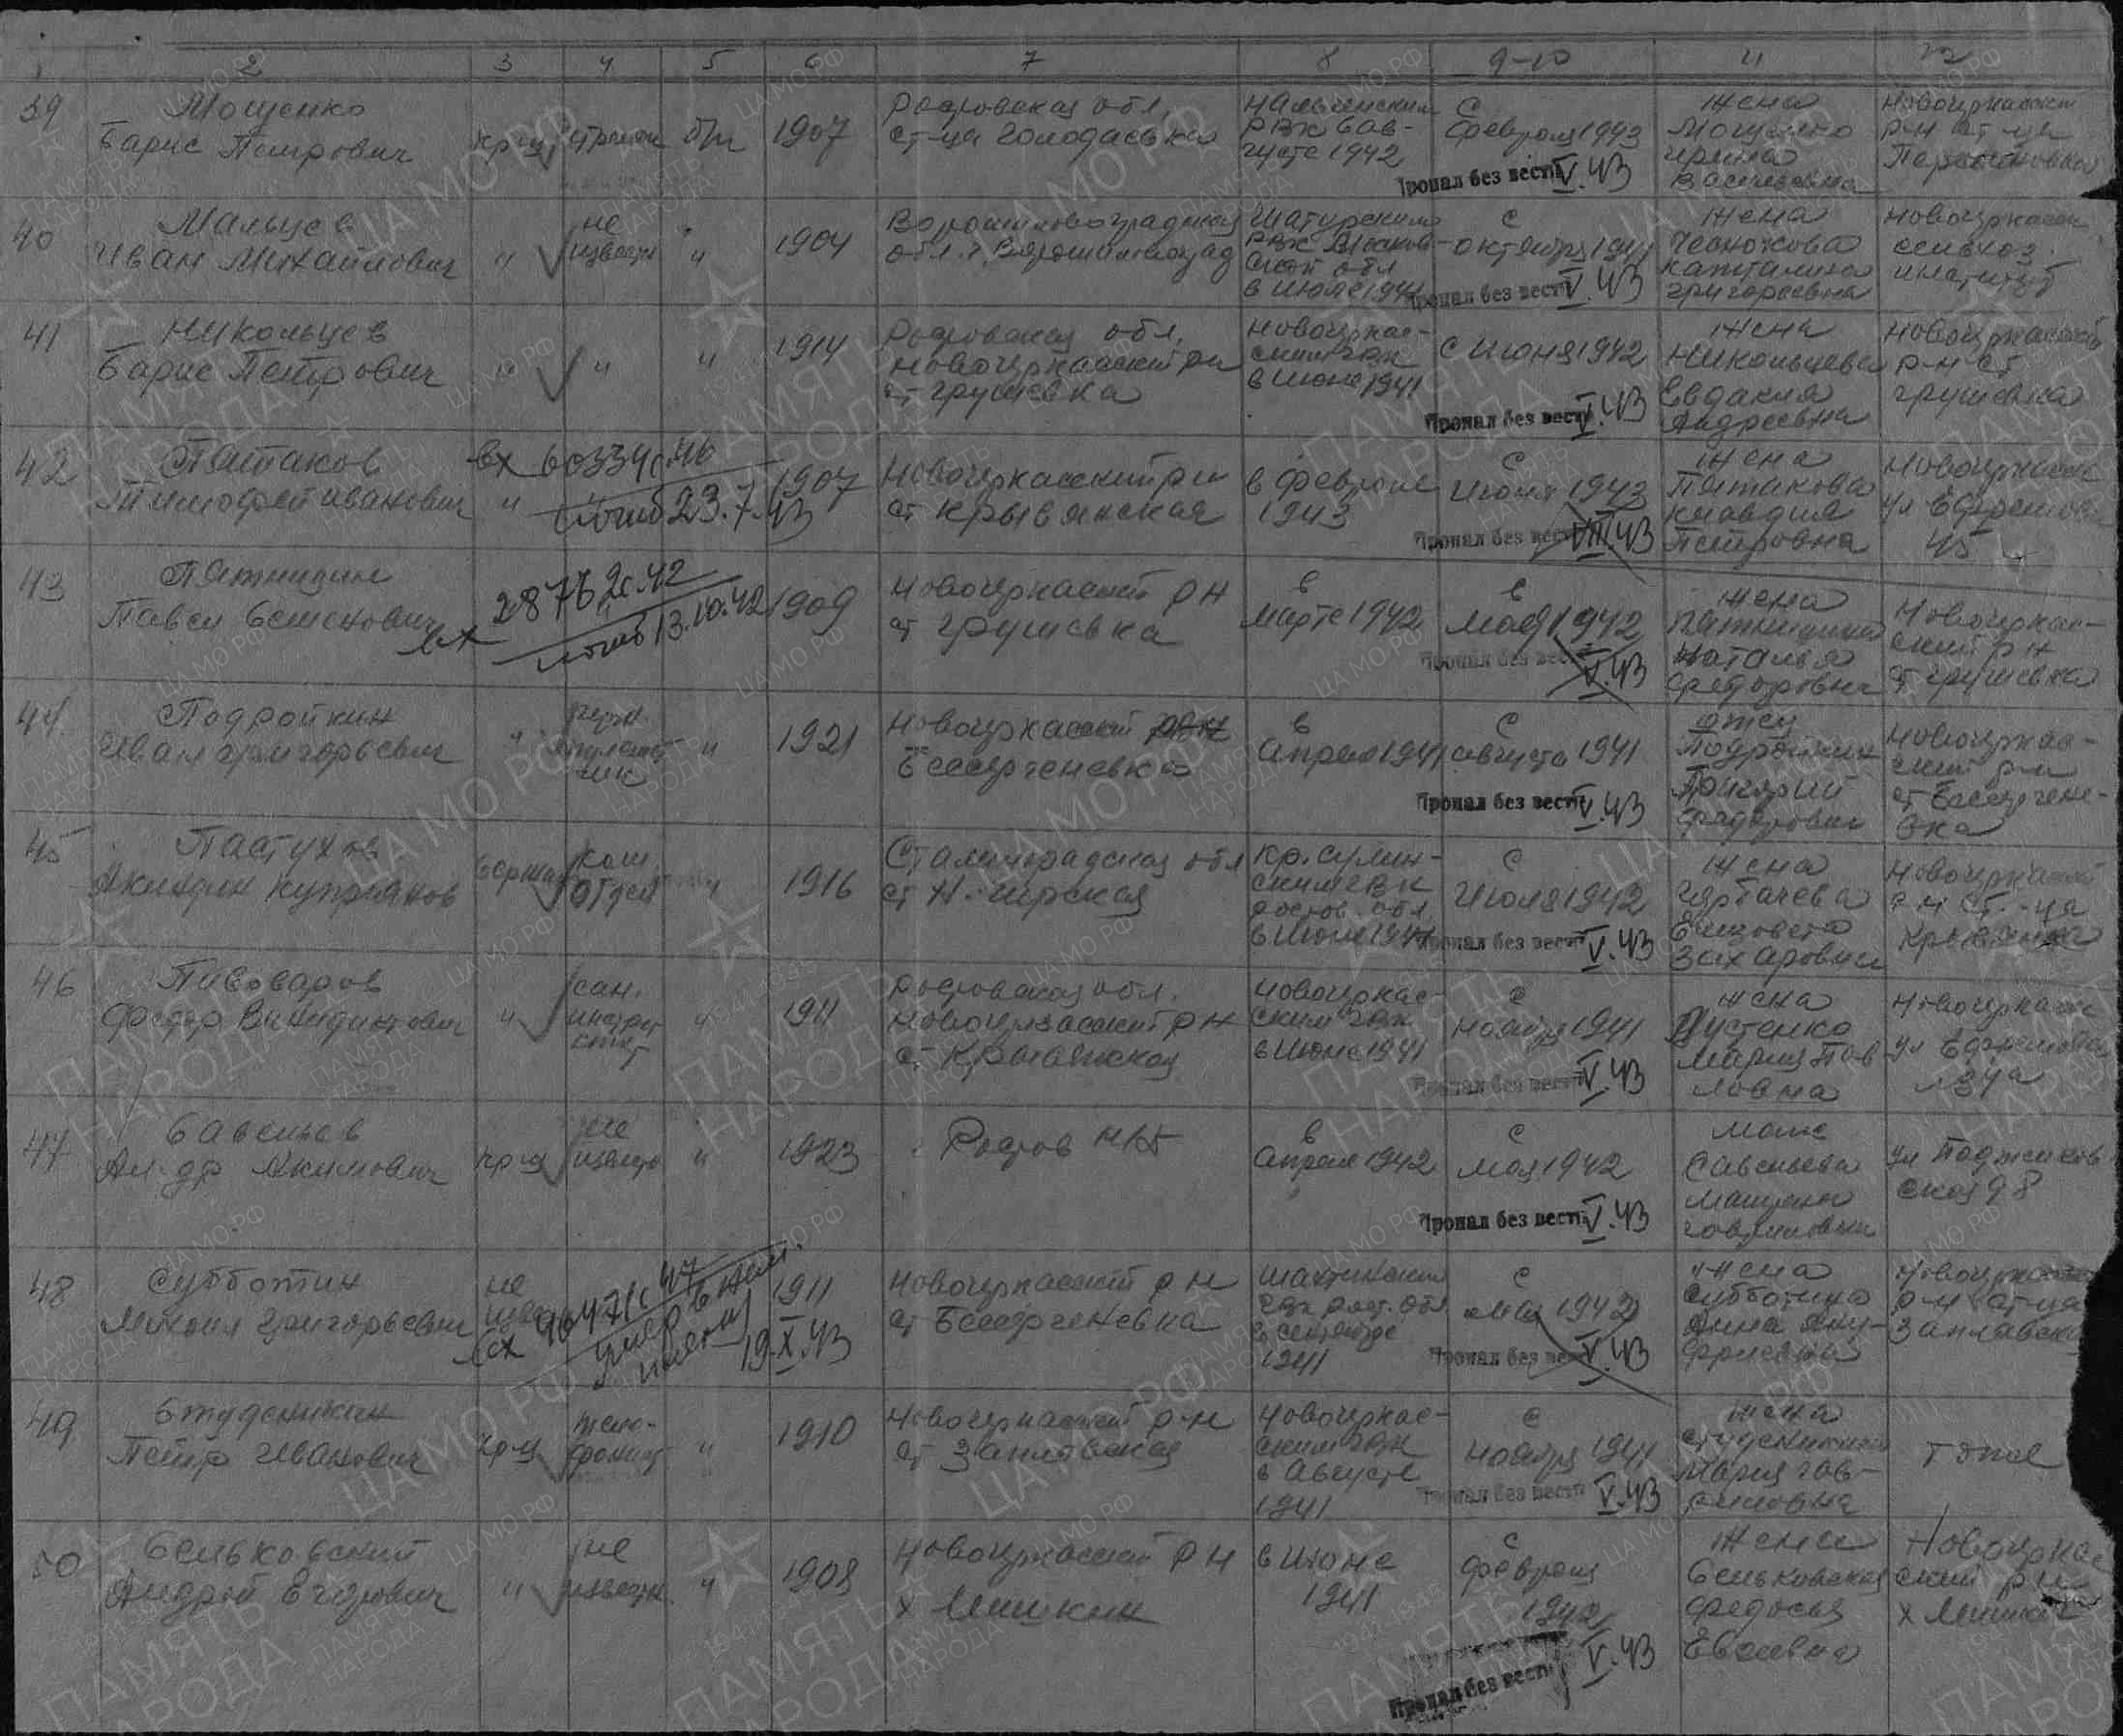 2 3 4 5 6 7 8 9-10 11 12
39
Мощенко
Барис Петрович
кр-ц стрелок б/п 1907
Ростовская обл.
ст-ца Голодаевка
РВК в ав-
густе 1942
с
февраля 1943
Пропал без вести V.43
жена
Мощенко
Ирина
Васильевна
Новочеркасский
р-н ст-ца
40
Мальцев
Иван Михайлович
" не
известн " 1904
Ворошиловоградская
обл. г. Ворошиловград
Шатурским
РВК Москов-
ской обл
в июле 1941
с
октября 1941
Пропал без вести V.43
жена
Чеснокова
Капталина
Григорьевна
Новочеркасск
сельхоз.
институт
41
Никольцев
Барис Петрович
" " " 1914
Ростовская обл.
Новочеркасский рн
ст Грушевка
Новочеркас-
ским ГВК
в июне 1941
с июня 1942
Пропал без вести V.43
жена
Никольцева
Евдакия
Андреевна
Новочеркасский
р-н ст
Грушевка
42
Пятаков
Тимофей Иванович
вх 60339с.46
" погиб 23.7.43
1907
Новочеркасский рн
ст Крывянская
в феврале
1943
с
июня 1943
Пропал без вести VIII.43
жена
Пятакова
Клавдия
Петровна
Новочеркасск
ул Ефремова
45
43
Пятницин
Павел Семенович
вх 28762с.42
погиб 13.10.42
1909
Новочеркасский рн
ст Грушевка
в
марте 1942
в
мая 1942
Пропал без вести V.43
жена
Пятницина
Наталья
Федоровна
Новочеркас-
ский рн
ст Грушевка
44
Подройкин
Иван Григорьевич
" "
1921
Новочеркасский рвн
Бессергеневка
в
апреле 1941
с
августа 1941
Пропал без вести V.43
отец
Подройкин
Григорий
Федорович
Новочеркас-
ский р-н
ст Бессергене-
вка
45
Пастухов
Акиндин Куприянов
сержан ком.
отдел " 1916
Сталинградская обл
ст Н-Чирская
Кр. Сулин-
ским РВК
Ростов. обл.
в июне 1941
с
июля 1942
Пропал без вести V.43
жена
Горбачева
Елизовета
Захаровна
Новочеркасский
р-н ст.-ца
Крывянка
46
Пивоваров
Федор Винидиктович
" сан.
инструк
"
1911
Ростовская обл.
Новочеркасский рн
ст Крывянская
Новочеркас-
ским ГВК
в июне 1941
с
ноября 1941
Пропал без вести V.43
жена
Дустенко
Мария Пав
ловна
Новочеркасск
ул Ефремова
47
Савельев
Ал-др Якимович
кр-ц не
известн " 1923
Ростов н/Д
в
апреле 1942
с
мая 1942
Пропал без вести V.43
мать
Савельева
Матрена
Гавриловна
ул Подтелков
ская 98
48
Субботин
Михаил Григорьевич
не
извес
вх 96471с47
умер в нем.
плену
19.X.43
1911
Новочеркасский рн
ст Бессергеневка
Шахтинским
ГВК Рост. обл
в сентябре
1941
с
мая 1942
Пропал без вести V.43
жена
Субботина
Анна Ану-
фриевна
Новочеркасский
р-н ст-ца
Заплавская
49
Студеникин
Петр Иванович
кр-ц теле-
фонист " 1910
Новочеркасский р-н
ст Заплавская
Новочеркас-
ским ГВК
в августе
1941
с
ноября 1941
Пропал без вести V.43
жена
Студеникина
Мария Гав-
риловна
Тоже
50
Сельковский
Андрей Егорович
" не
известн. " 1908
Новочеркасский рн
х Мишкин
в июне
1941
с
февраля
1942
Пропал без вести V.43
жена
Сельковская
Федосья
Евсеевна
Новочеркас
ский рн
х Мишкин